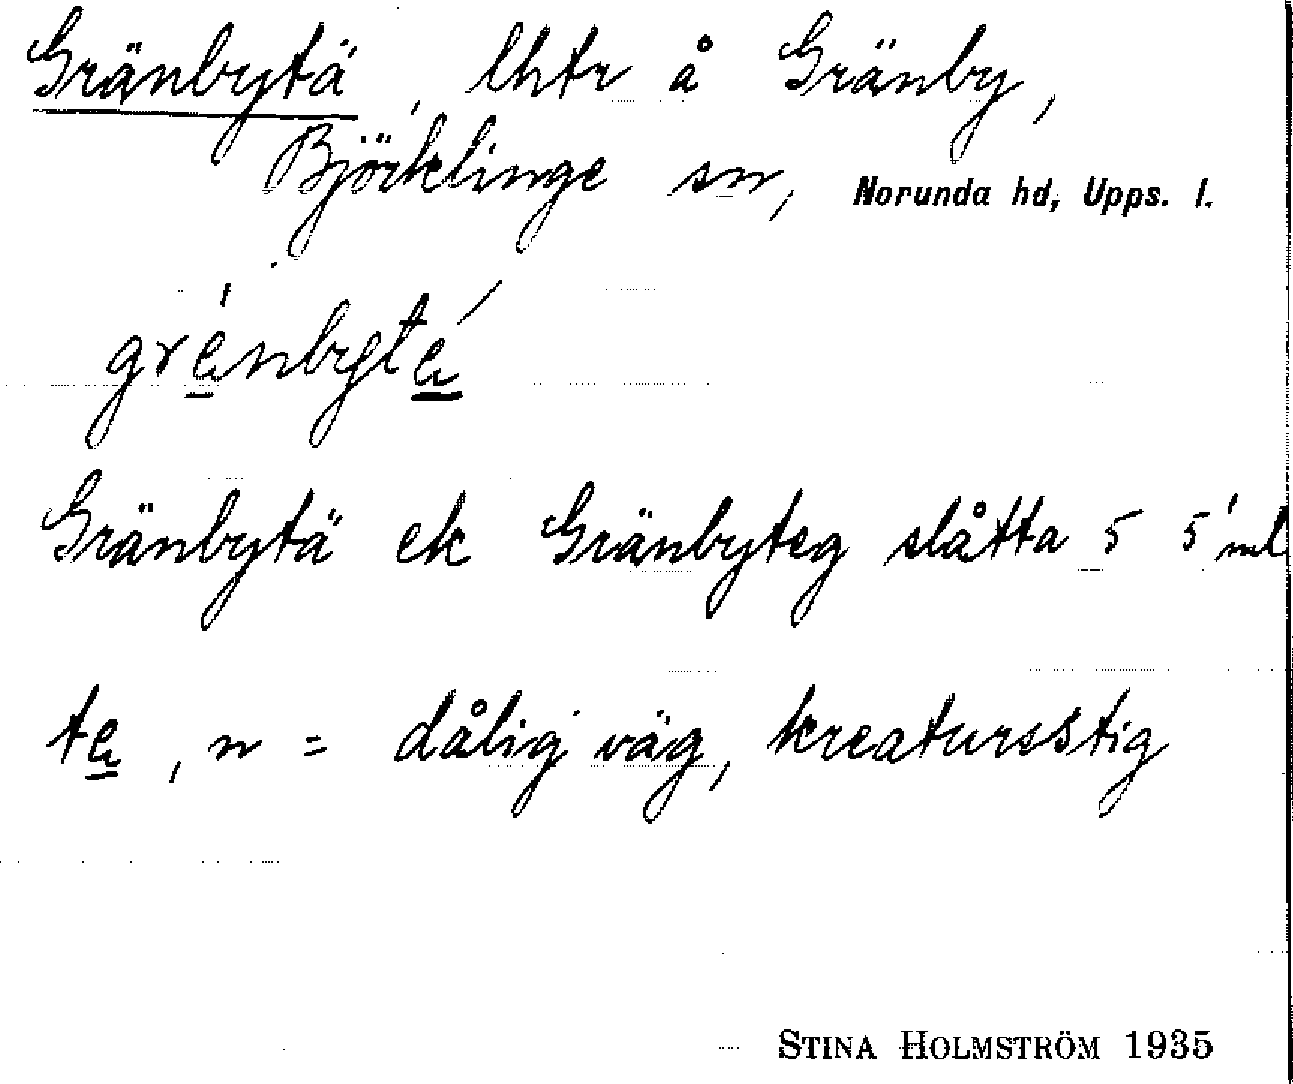 Gränbytä, lhtr å Gränby,
Björklinge sn, Norunda hd, Upps. l.
grénbyté̲
Gränbytä ek Gränbyteg slåtta 5 5 ml
te̲, n = dålig väg, kreatursstig
STINA HOLMSTRÖM 1935